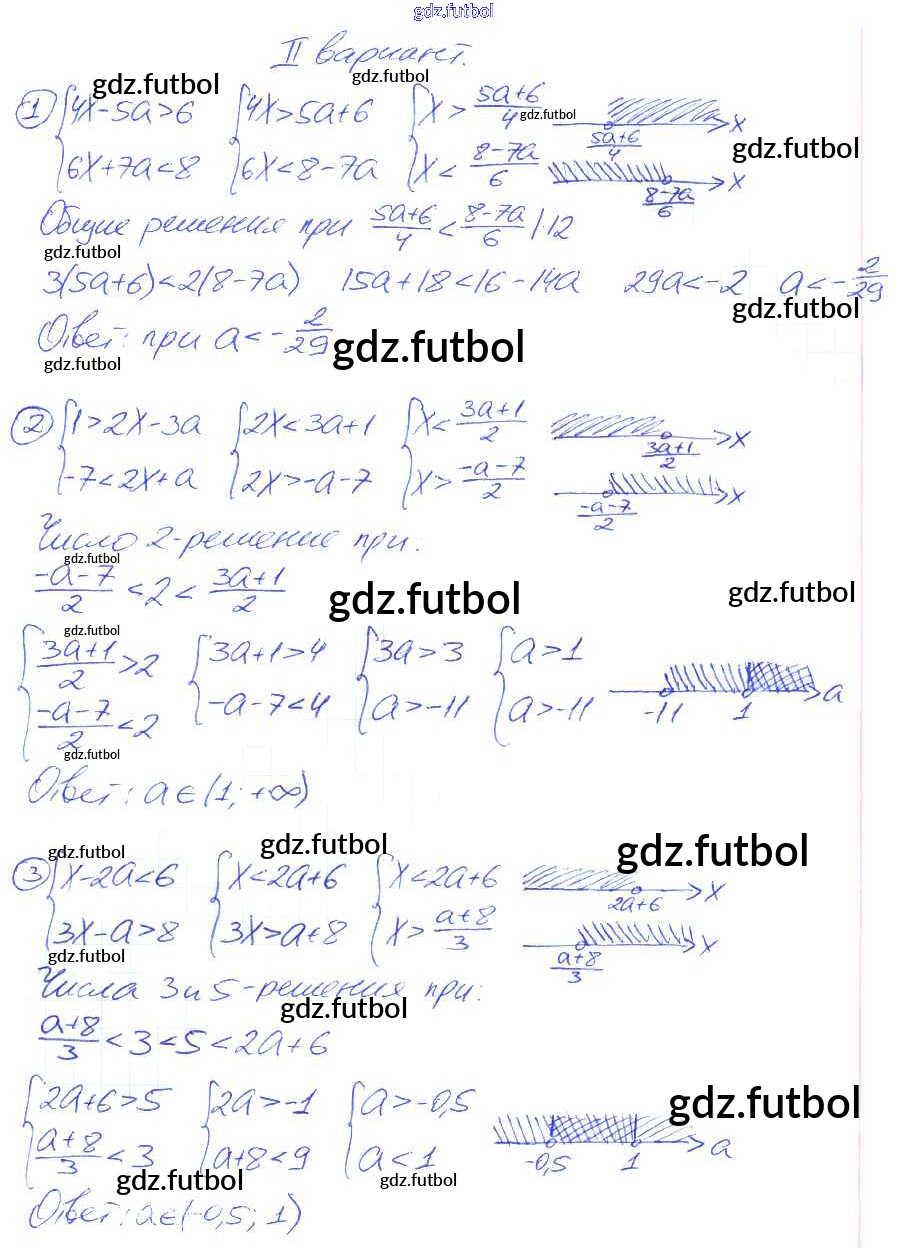 gdz.futbol
II вариант.
gdz.futbol gdz.futbol
① {4x-5a>6 {4x>5a+6 {x > (5a+6)/4 gdz.futbol (5a+6)/4 x
gdz.futbol
6x+7a<8 6x<8-7a x < (8-7a)/6 (8-7a)/6 x
Общие решения при (5a+6)/4 < (8-7a)/6 |·12
gdz.futbol
3(5a+6)<2(8-7a) 15a+18<16-14a 29a<-2 a<-2/29
gdz.futbol
Ответ: при a<-2/29
gdz.futbol
gdz.futbol
② {1>2x-3a {2x<3a+1 {x < (3a+1)/2 (3a+1)/2 x
-7<2x+a 2x>-a-7 x > (-a-7)/2 (-a-7)/2 x
Число 2-решение при:
gdz.futbol
(-a-7)/2 < 2 < (3a+1)/2
gdz.futbol gdz.futbol
gdz.futbol
{(3a+1)/2 > 2 {3a+1>4 {3a>3 {a>1
(-a-7)/2 < 2 -a-7<4 a>-11 a>-11 -11 1 a
gdz.futbol
Ответ: a∈(1; +∞)
gdz.futbol gdz.futbol gdz.futbol
③ {x-2a<6 {x<2a+6 {x<2a+6 2a+6 x
3x-a>8 3x>a+8 x > (a+8)/3 (a+8)/3 x
gdz.futbol
Числа 3 и 5-решения при:
gdz.futbol
(a+8)/3 < 3 < 5 < 2a+6
{2a+6>5 {2a>-1 {a>-0,5
gdz.futbol
(a+8)/3 < 3 a+8<9 a<1 -0,5 1 a
gdz.futbol gdz.futbol
Ответ: a∈(-0,5; 1)